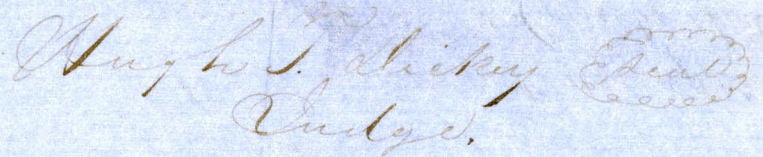 Hugh T. Dickey Seal
Judge.